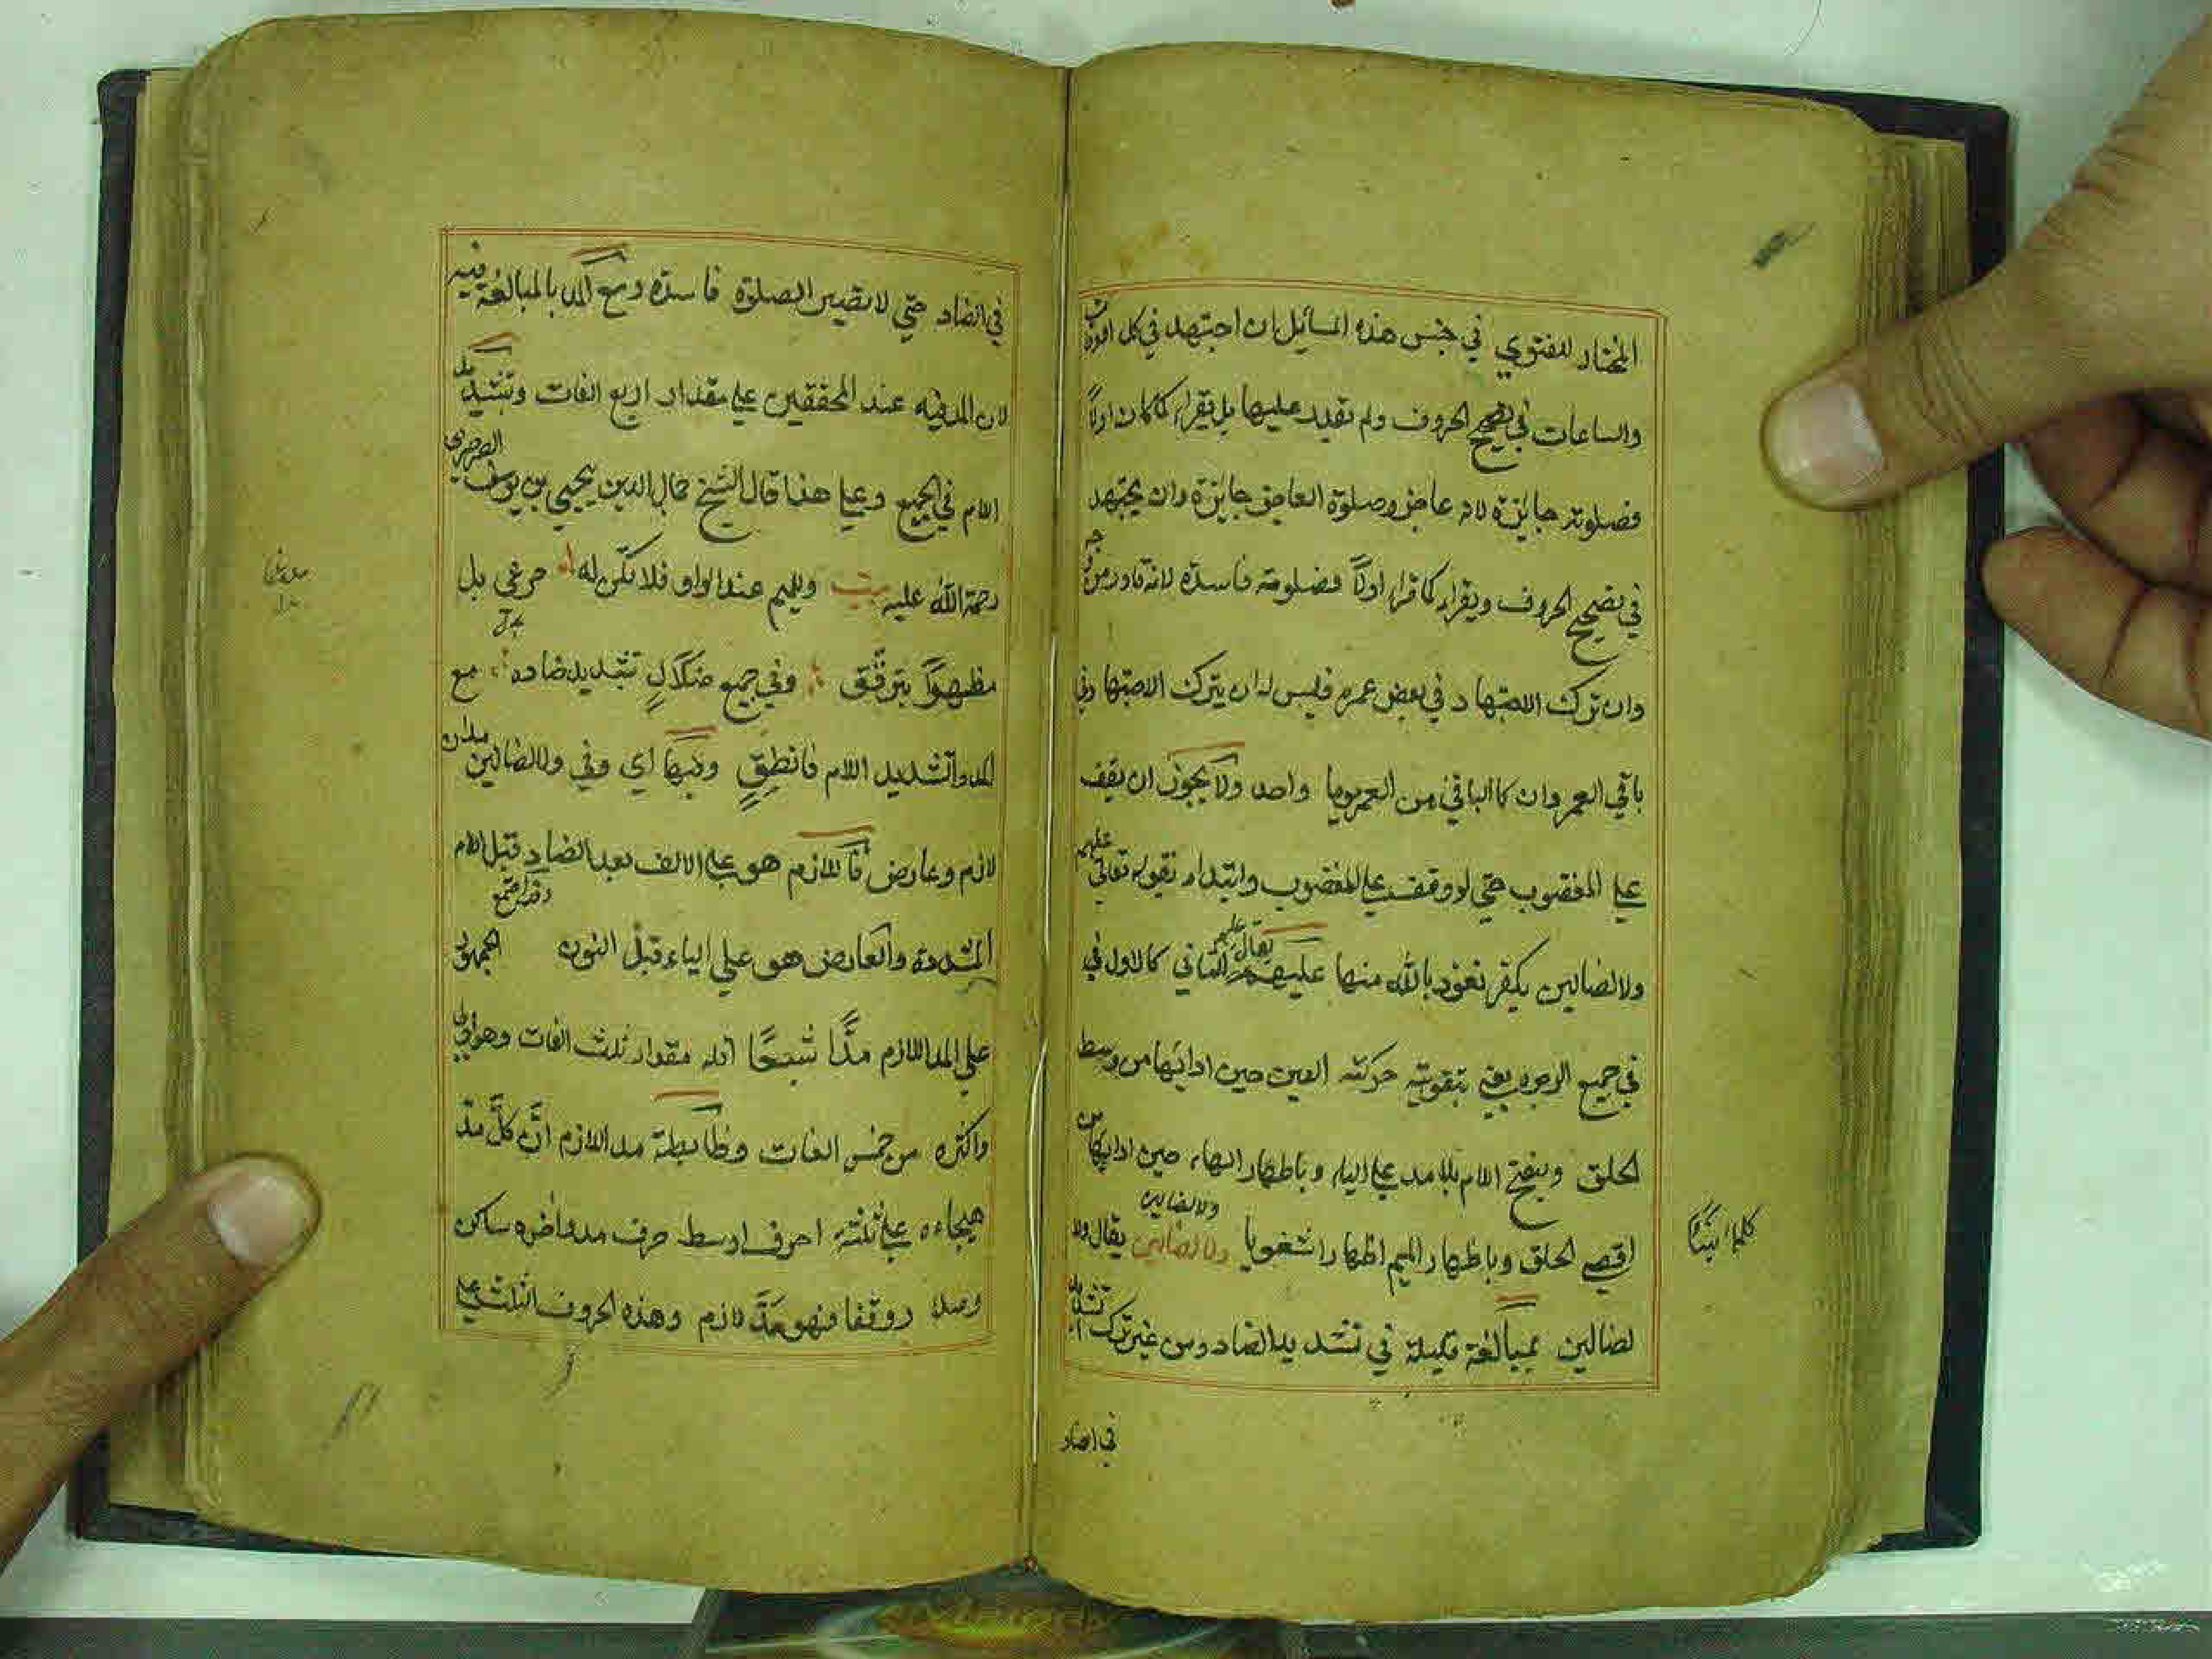 المختار للفتوي في جنس هذه المسائل ان اجتهد في كل
والساعات في تصحيح الحروف ولم تقدر عليها بل يقراء كما كان اولا
فصلوته جائزة لانه عاجز وصلوة العاجز جايزة وان يجتهد
في تصحيح الحروف ويقراء كما قراء اولا فصلوته فاسدة لانه قادر
وان ترك الاجتهاد في بعض عمره فليس له ان يترك الاجتهاد في
باقي العمر وان كا الباقي من العمر يوما واحد ولا يجوز ان يقف
علي المغضوب حتي لو وقف علي المغضوب وابتداء بقوله تعالي عليهم
ولا الضالين يكفر نعوذ بالله منها عليهم يقال عليهم الثاني كالاول في
في جميع الوجوه يعني بتقوية حركة العين حين ادائها من وسط
الحلق وبفتح اللام بلا مد علي الياء وباظهار الهاء حين ادائها من
اقصي الحلق وباظهار الميم اظهارا شفويا ولا الضالين ولا الضالين يقال ولا
لضالين بمبالغة قليلة في تشديد الضاد ومن غير ترك
كلها بينا
في الضاد
في الضاد حتي لا تصير الصلوة فاسدة ومع المد بالمبالغة فيه
لان المد فيه عند المحققين علي مقدار اربع الفات وتشديد
اللام في الجميع وعلي هذا قال الشيخ جمال الدين يحيي بن يوسف الصرصري
رحمة الله عليه بيت وللميم عند الواو فلا تكن له مدغما بل
مظهرا بترفق وفي جميع ضلال تشديد ضاده مع
المد وتشديد اللام فانطق ونبها اي وفي ولا الضالين مدان
لازم وعارض فاللازم هو علي الالف بعد الضاد قبل اللام
المشددة والعارض هو علي الياء قبل النون وقد اجمع الجمهور
علي المد اللازم مدا شبعا اقله مقدار ثلث الفات وهو اولي
واكثره من خمس الفات وضابطة مد اللازم ان كل مد
هيجاءه علي ثلثة احرف اوسط حرف مد واخره ساكن
وصلا ووقفا فهو مد لازم وهذه الحروف الثلث علي